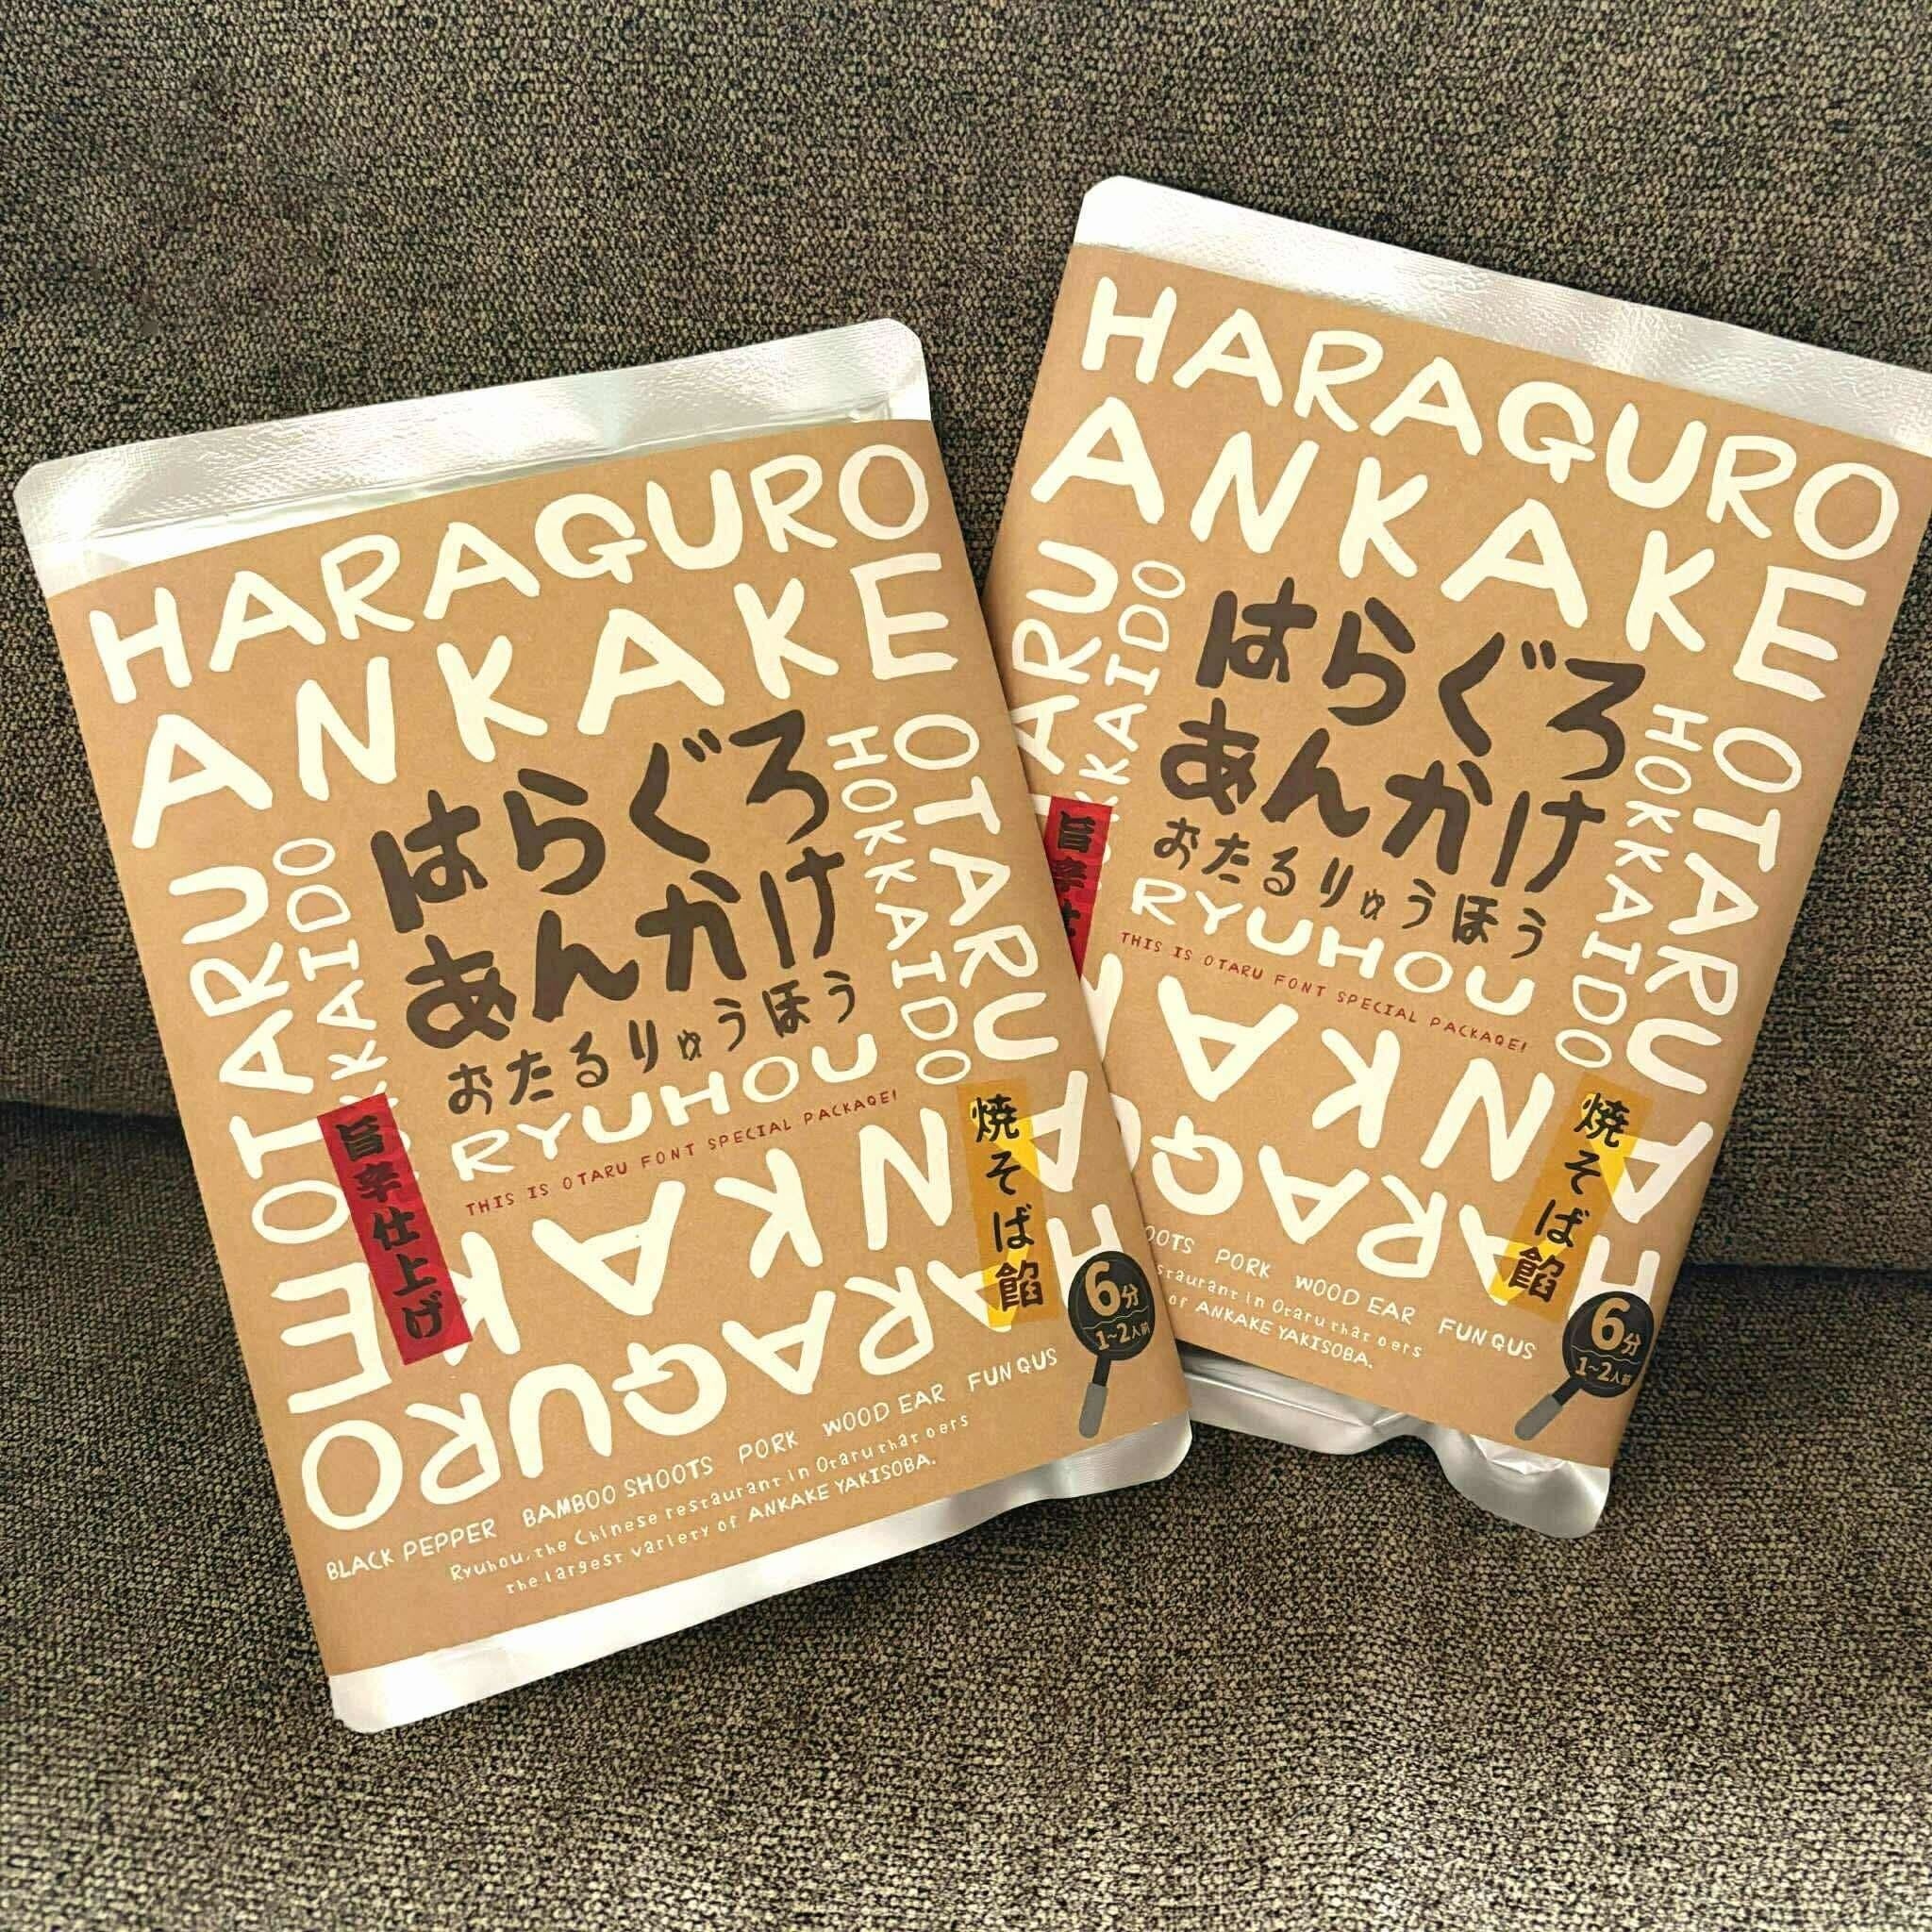 HARAGURO
ANKAKE
OTARU
HOKKAIDO
はらぐろ
あんかけ
おたるりゅうほう
RYUHOU
THIS IS OTARU FONT SPECIAL PACKAGE!
OTARU
KAIDO
旨辛仕上げ
焼そば餡
ANKAKE
HARAGURO
6分
1~2人前
BLACK PEPPER BAMBOO SHOOTS PORK WOOD EAR FUNGUS
Ryuhou, the Chinese restaurant in Otaru that oers
the largest variety of ANKAKE YAKISOBA.
HARAGURO
ANKAKE
OTARU
HOKKAIDO
はらぐろ
あんかけ
おたるりゅうほう
RYUHOU
THIS IS OTARU FONT SPECIAL PACKAGE!
ARU
KAIDO
旨辛仕
焼そば餡
ANKA
HARAG
6分
1~2人前
OOTS PORK WOOD EAR FUNGUS
staurant in Otaru that oers
of ANKAKE YAKISOBA.